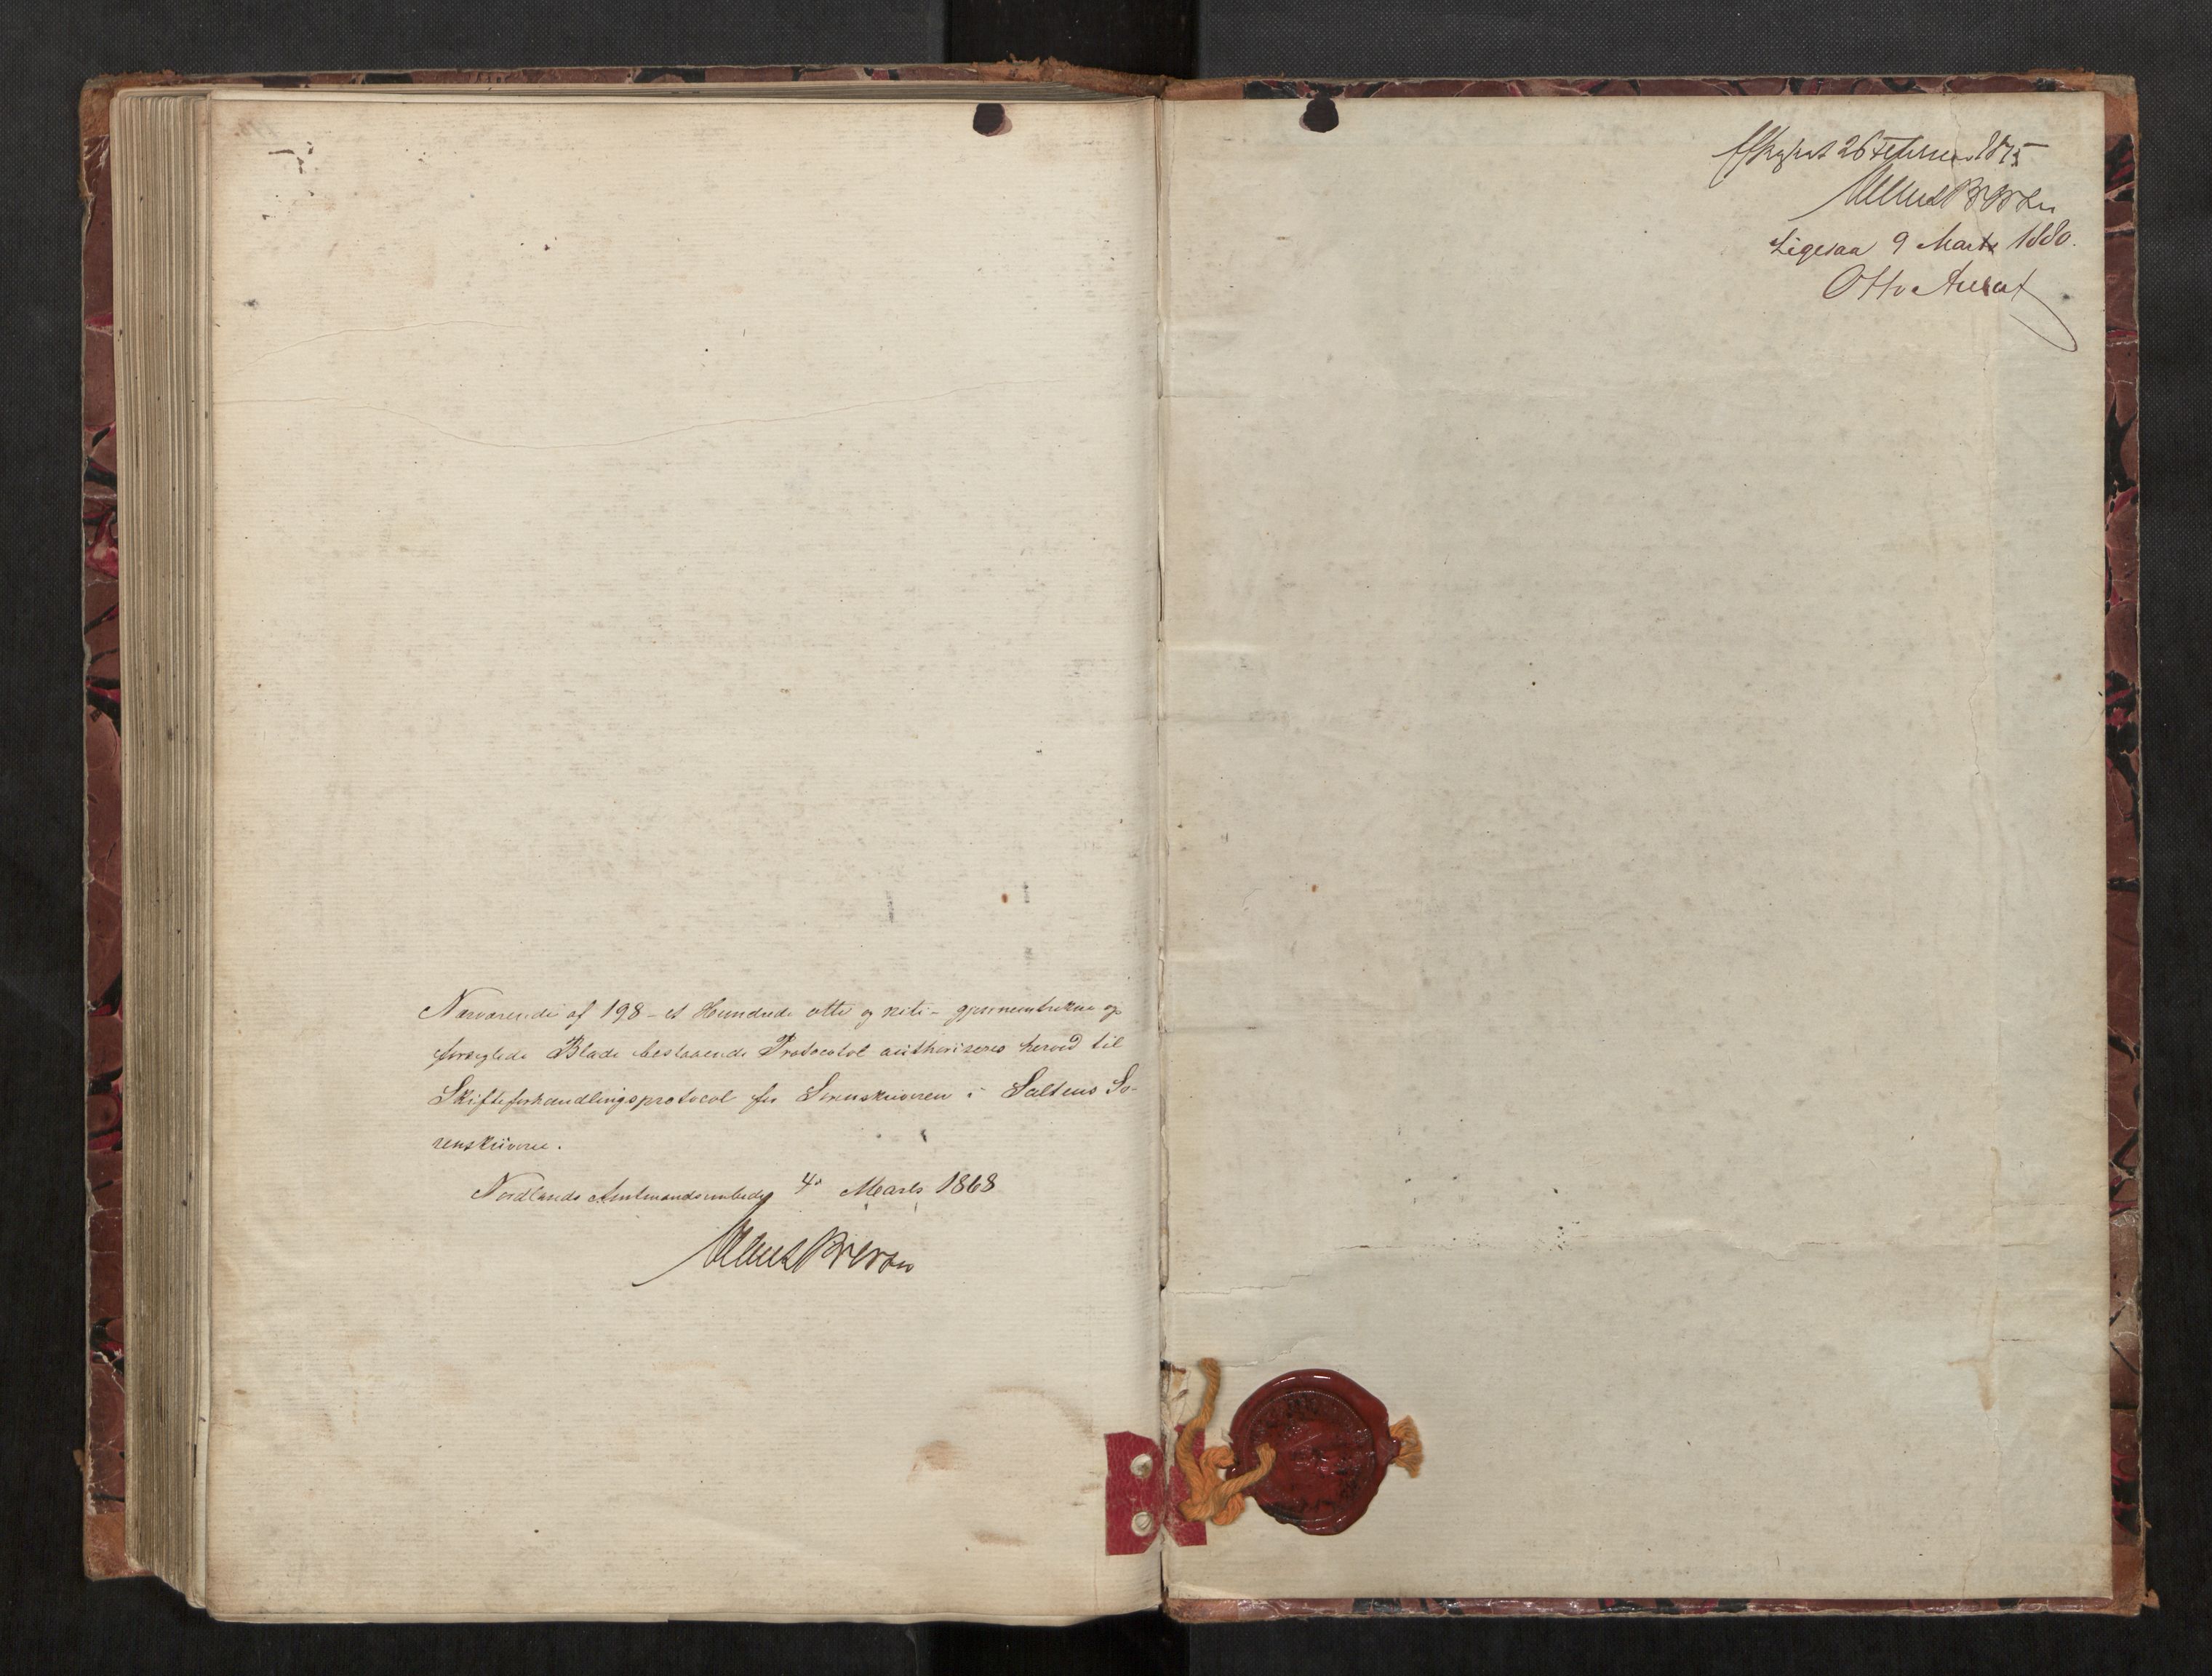 Nærværende af 198 - et Hundrede otte og niti - gjennemtrukne og
forseglede Blade bestaaende Protocol authoriseres herved til
Skifteforhandlingsprotocol for Sorenskriveren i Saltens So-
renskriverie.
Nordlands Amtmandsembede 4de Marts 1868
Efterseet 26 Februar 1875
Ligesaa 9 Marts 1880.
Otto